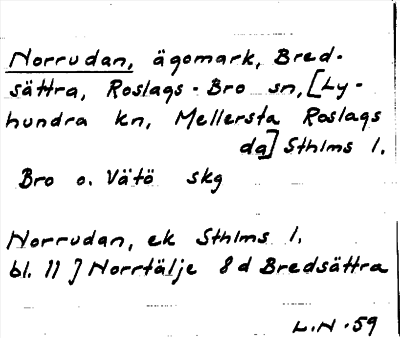 Norrudan, ägomark, Bred-
sättra, Roslags-Bro sn, [Ly-
hundra kn, Mellersta Roslags
dg] Sthlms l.
Bro o. Vätö skg
Norrudan, ek Sthlms l.
bl. 11 J Norrtälje 8 d Bredsättra
L.N.59